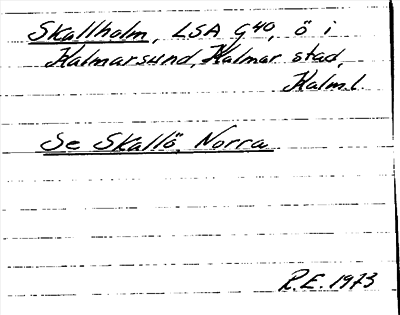 Skallholm, LSA G40, ö i
Kalmarsund, Kalmar stad,
Kalm.l.
Se Skallö, Norra
R.E. 1973